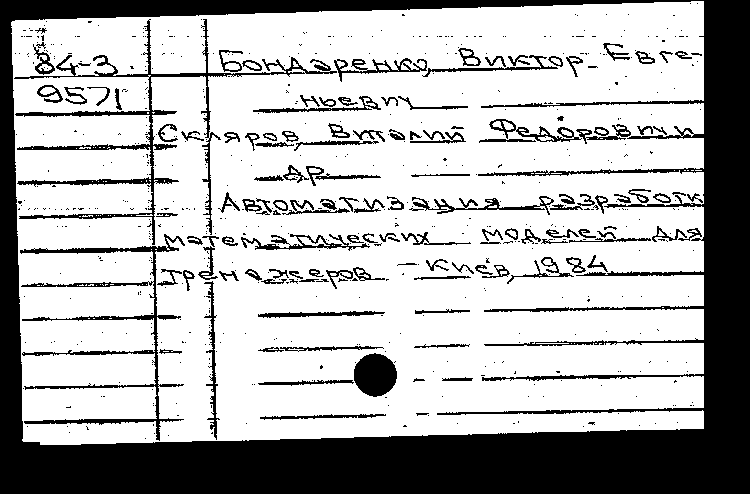 84-3 Бондаренко, Виктор Евге-
9571 ньевич
Скляров, Виталий Федорович и
др.
Автоматизация разработк
математических моделей для
тренажеров - Киев, 1984